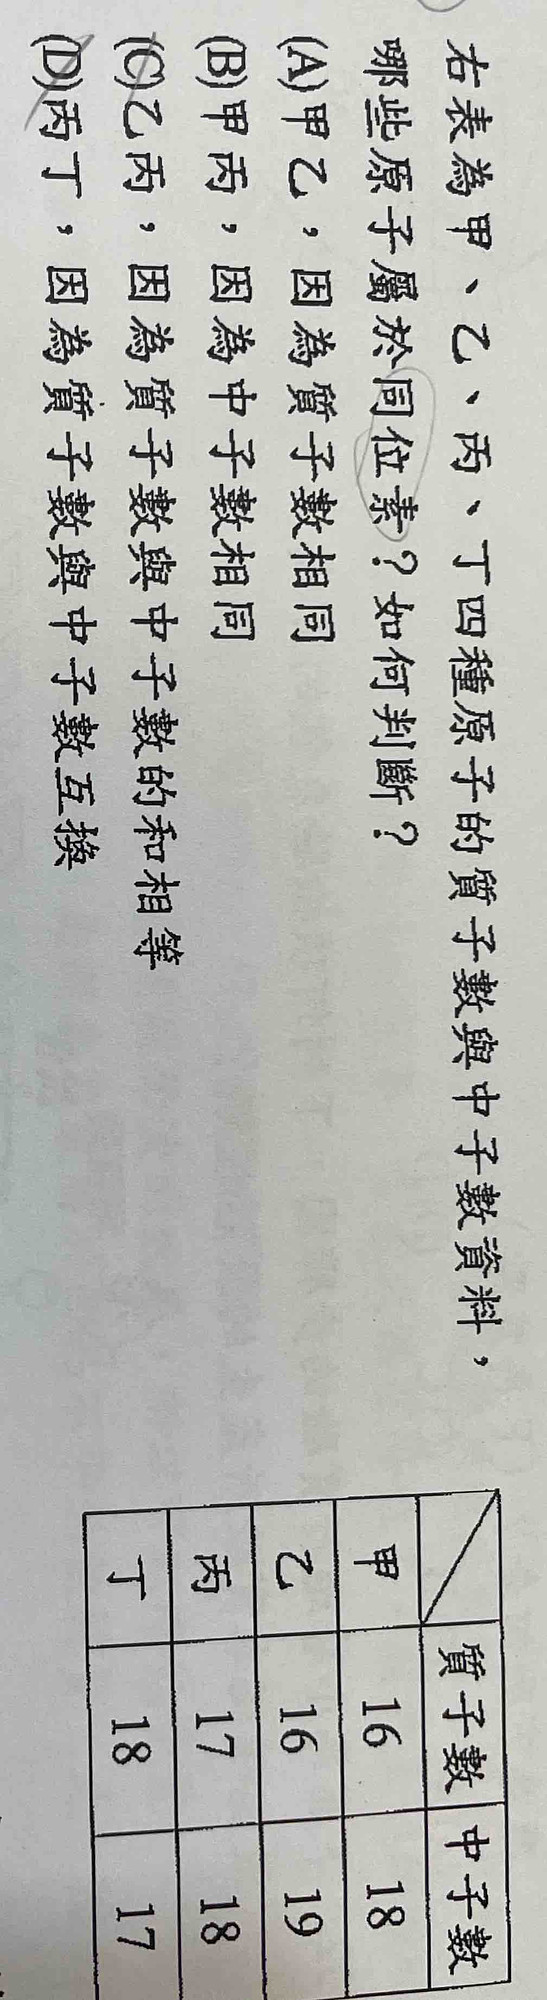 右表為甲、乙、丙、丁四種原子的質子數與中子數資料，
哪些原子屬於同位素？如何判斷？
(A)甲乙，因為質子數相同
(B)甲丙，因為中子數相同
(C)乙丙，因為質子數與中子數的和相等
(D)丙丁，因為質子數與中子數互換
質子數 中子數
甲 16 18
乙 16 19
丙 17 18
丁 18 17